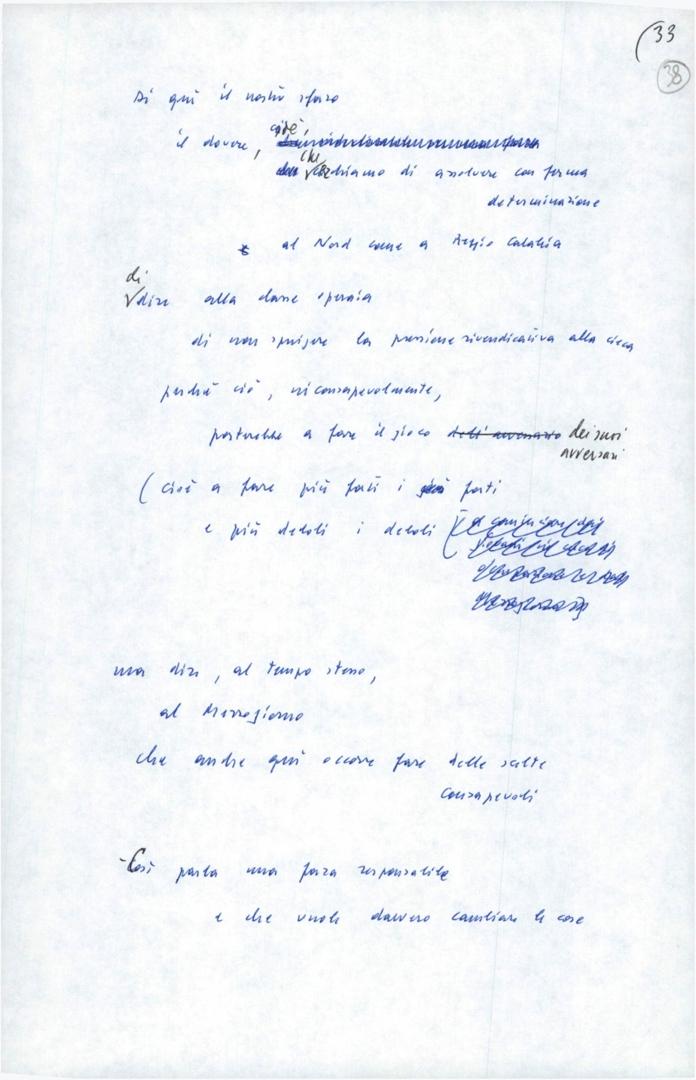 (33
38
Di qui il nostro sforzo
il dovere, cioè,
che cerchiamo di assolvere con ferma
determinazione
al Nord come a Reggio Calabria
di
dire alla classe operaia
di non spingere la pressione rivendicativa alla cieca
perché ciò, inconsapevolmente,
porterebbe a fare il gioco dell'avversario dei suoi
avversari
(cioè a fare più forti i più forti
e più deboli i deboli
ma dire, al tempo stesso,
al Mezzogiorno
che anche qui occorre fare delle scelte
consapevoli
- Così parla una forza responsabile
e che vuole davvero cambiare le cose